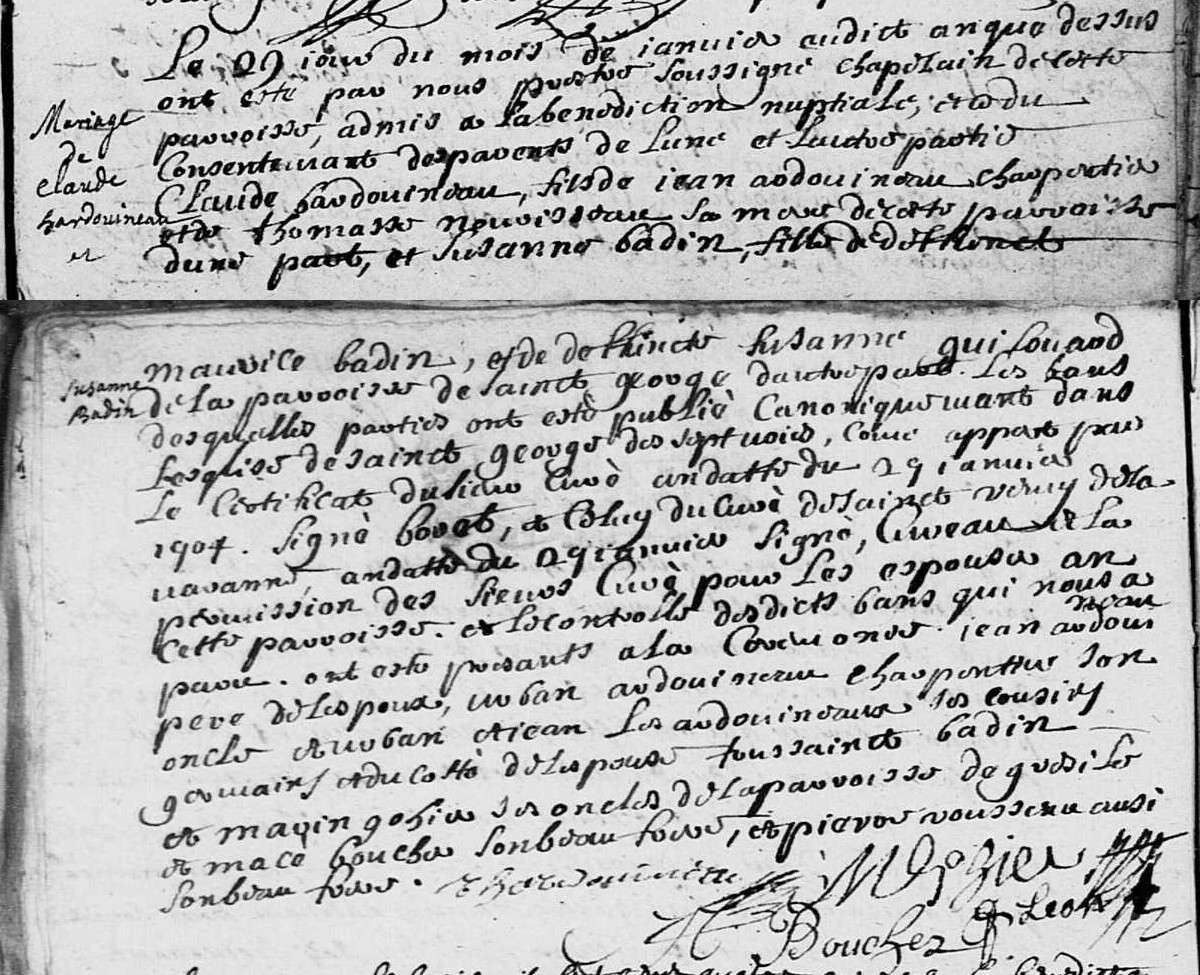 Le 29 iour du mois de ianvier audict an que dessus
ont esté par nous prestre soussigné chapelain de cette
parroisse, admis a la benediction nuptiale, et du
Consentemant des parents de Lune et Lautre partie
Claude hardouineau, fils de iean ardouineau charpentier
et de thomasse nourisseau sa mere de cete parroisse
dune part, et susanne badin, fille de defhinct
Mariage
de
Claude
hardouineau
et
maurice badin, et de defhincte susanne guilouard
de la parroisse de sainct george dautre part. Les bans
desquelles parties ont esté publié Canoniquemant dans
Leglise de sainct george des sept voies, come appert par
Le Certificat du sieur Curé andatte du 29 ianvier
1704. signé bovet, et Celuy du Curé de sainct veruy de la
varanne, andatte du 29 ianvier signé, Cureau et La
permission des sieurs Curé pour Les espouser an
Cette parroisse. et Le controlle desdicts bans qui nous a
paru. ont esté presants a la Ceremonie. iean ardoui
neau
pere de Lespoux, urban ardouineau charpentier son
oncle et urban et iean Les ardouineaux ses cousins
germains et du costé de Lespouse toussainct badin
et maçé boucher son beau frere, et pierre rousseau aussi
son beau frere.
Susanne
Badin
Boucher